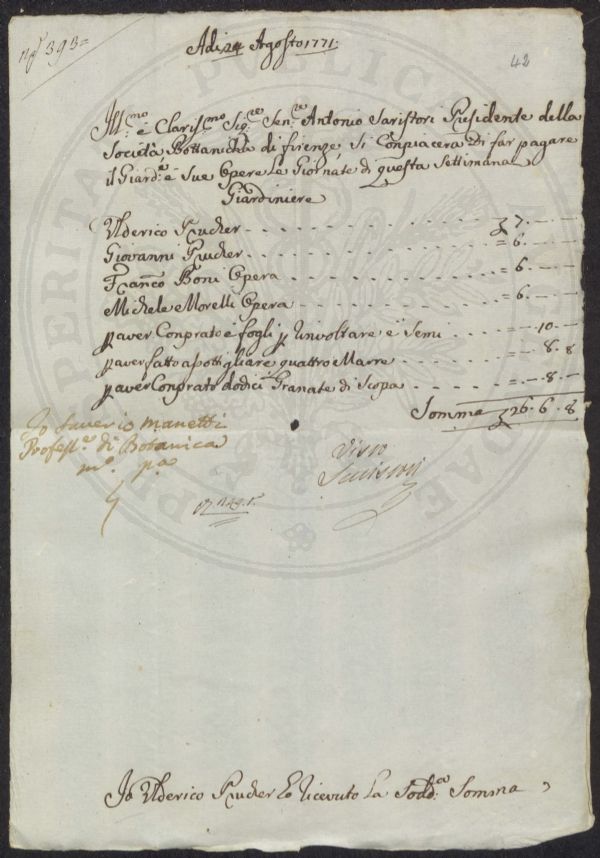 n.º 393=
Adi 24 Agosto 1771.
42
Ill.mo e Claris.mo Sig.re Sen.re Antonio Saristori Presidente della
Società Bottanicha di firenze Si Conpiacera Di far pagare
il Giard.e e Sue Opere Le Giornate di questa Settimana
Giardiniere
Ulderico Prucher - - - - 7. — . —
Giovanni Prucher - - - - = 6. — . —
Franco Boni Opera - - - - = 6. — . —
Michele Morelli Opera - - - - = 6. — . —
p aver Conprato e fogli p Rinvoltare e Semi . . . . = — . 10. —
p aver fatto apottigliare quattro Marre . . . . = — . 8. 8
p aver Conprato dodici Granate di Scopa . . . . = — . 8. —
Somma 26. 6. 8
Io Saverio Manetti
Profess.re di Botanica
m.o p.a
Visto
Io Ulderico Prucher ho ricevuto La Sodd.a Somma
PERITA
PUBLICAE